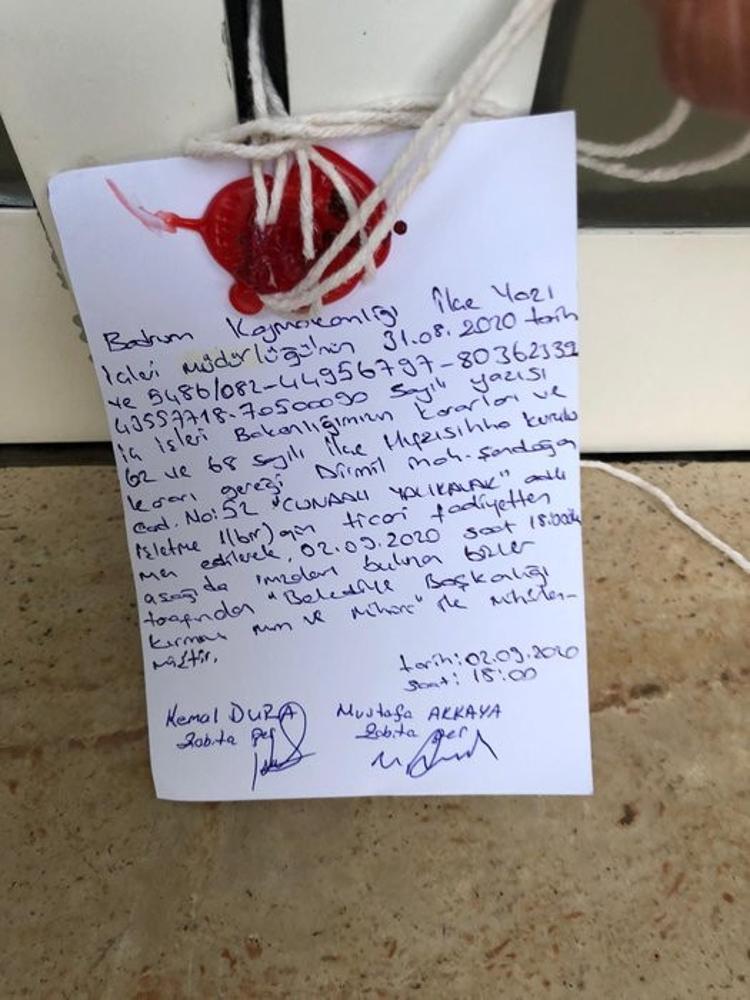 Bodrum Kaymakanlığı İlçe Yazı
İşleri müdürlüğü'nün 31.08.2020 tarih
ve 5486/082-44956797-80362339
43557718-70500090 sayılı yazısı
iç işleri Bakanlığımızın kararları ve
62 ve 68 sayılı ilçe Hıfzısıhha kurulu
kararı gereği Dirmil mah. Şendoğan
Cad. No:52 "CUNDALI YALIKAVAK" adlı
işletme 1(bir) gün ticari faaliyetten
men edilerek, 02.09.2020 saat 18:00
aşağıda imzaları buluna bizler
tarafından "Belediye Başkanlığı
kırmızı mum ve Mühürü" ile mühürlen-
miştir.
tarih: 02.09.2020
saat: 18:00
Kemal DURA Mustafa AKKAYA
Zabıta per Zabıta per